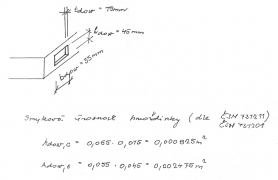 ldow = 75mm
tdow = 45mm
bdow = 55mm
Smyková únosnost hmoždinky (dle ČSN 731711
ČSN 731701
Adow,c = 0,055 . 0,015 = 0,000825 m²
Adow,s = 0,055 . 0,045 = 0,002475 m²